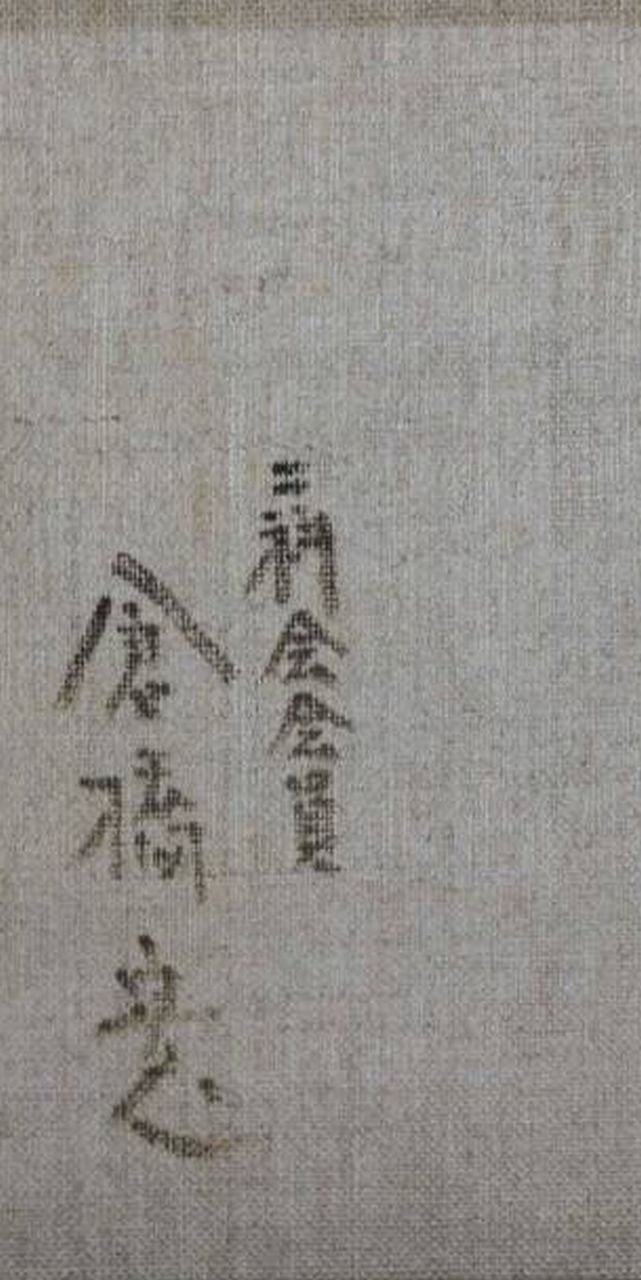 二科会会員
倉橋忠